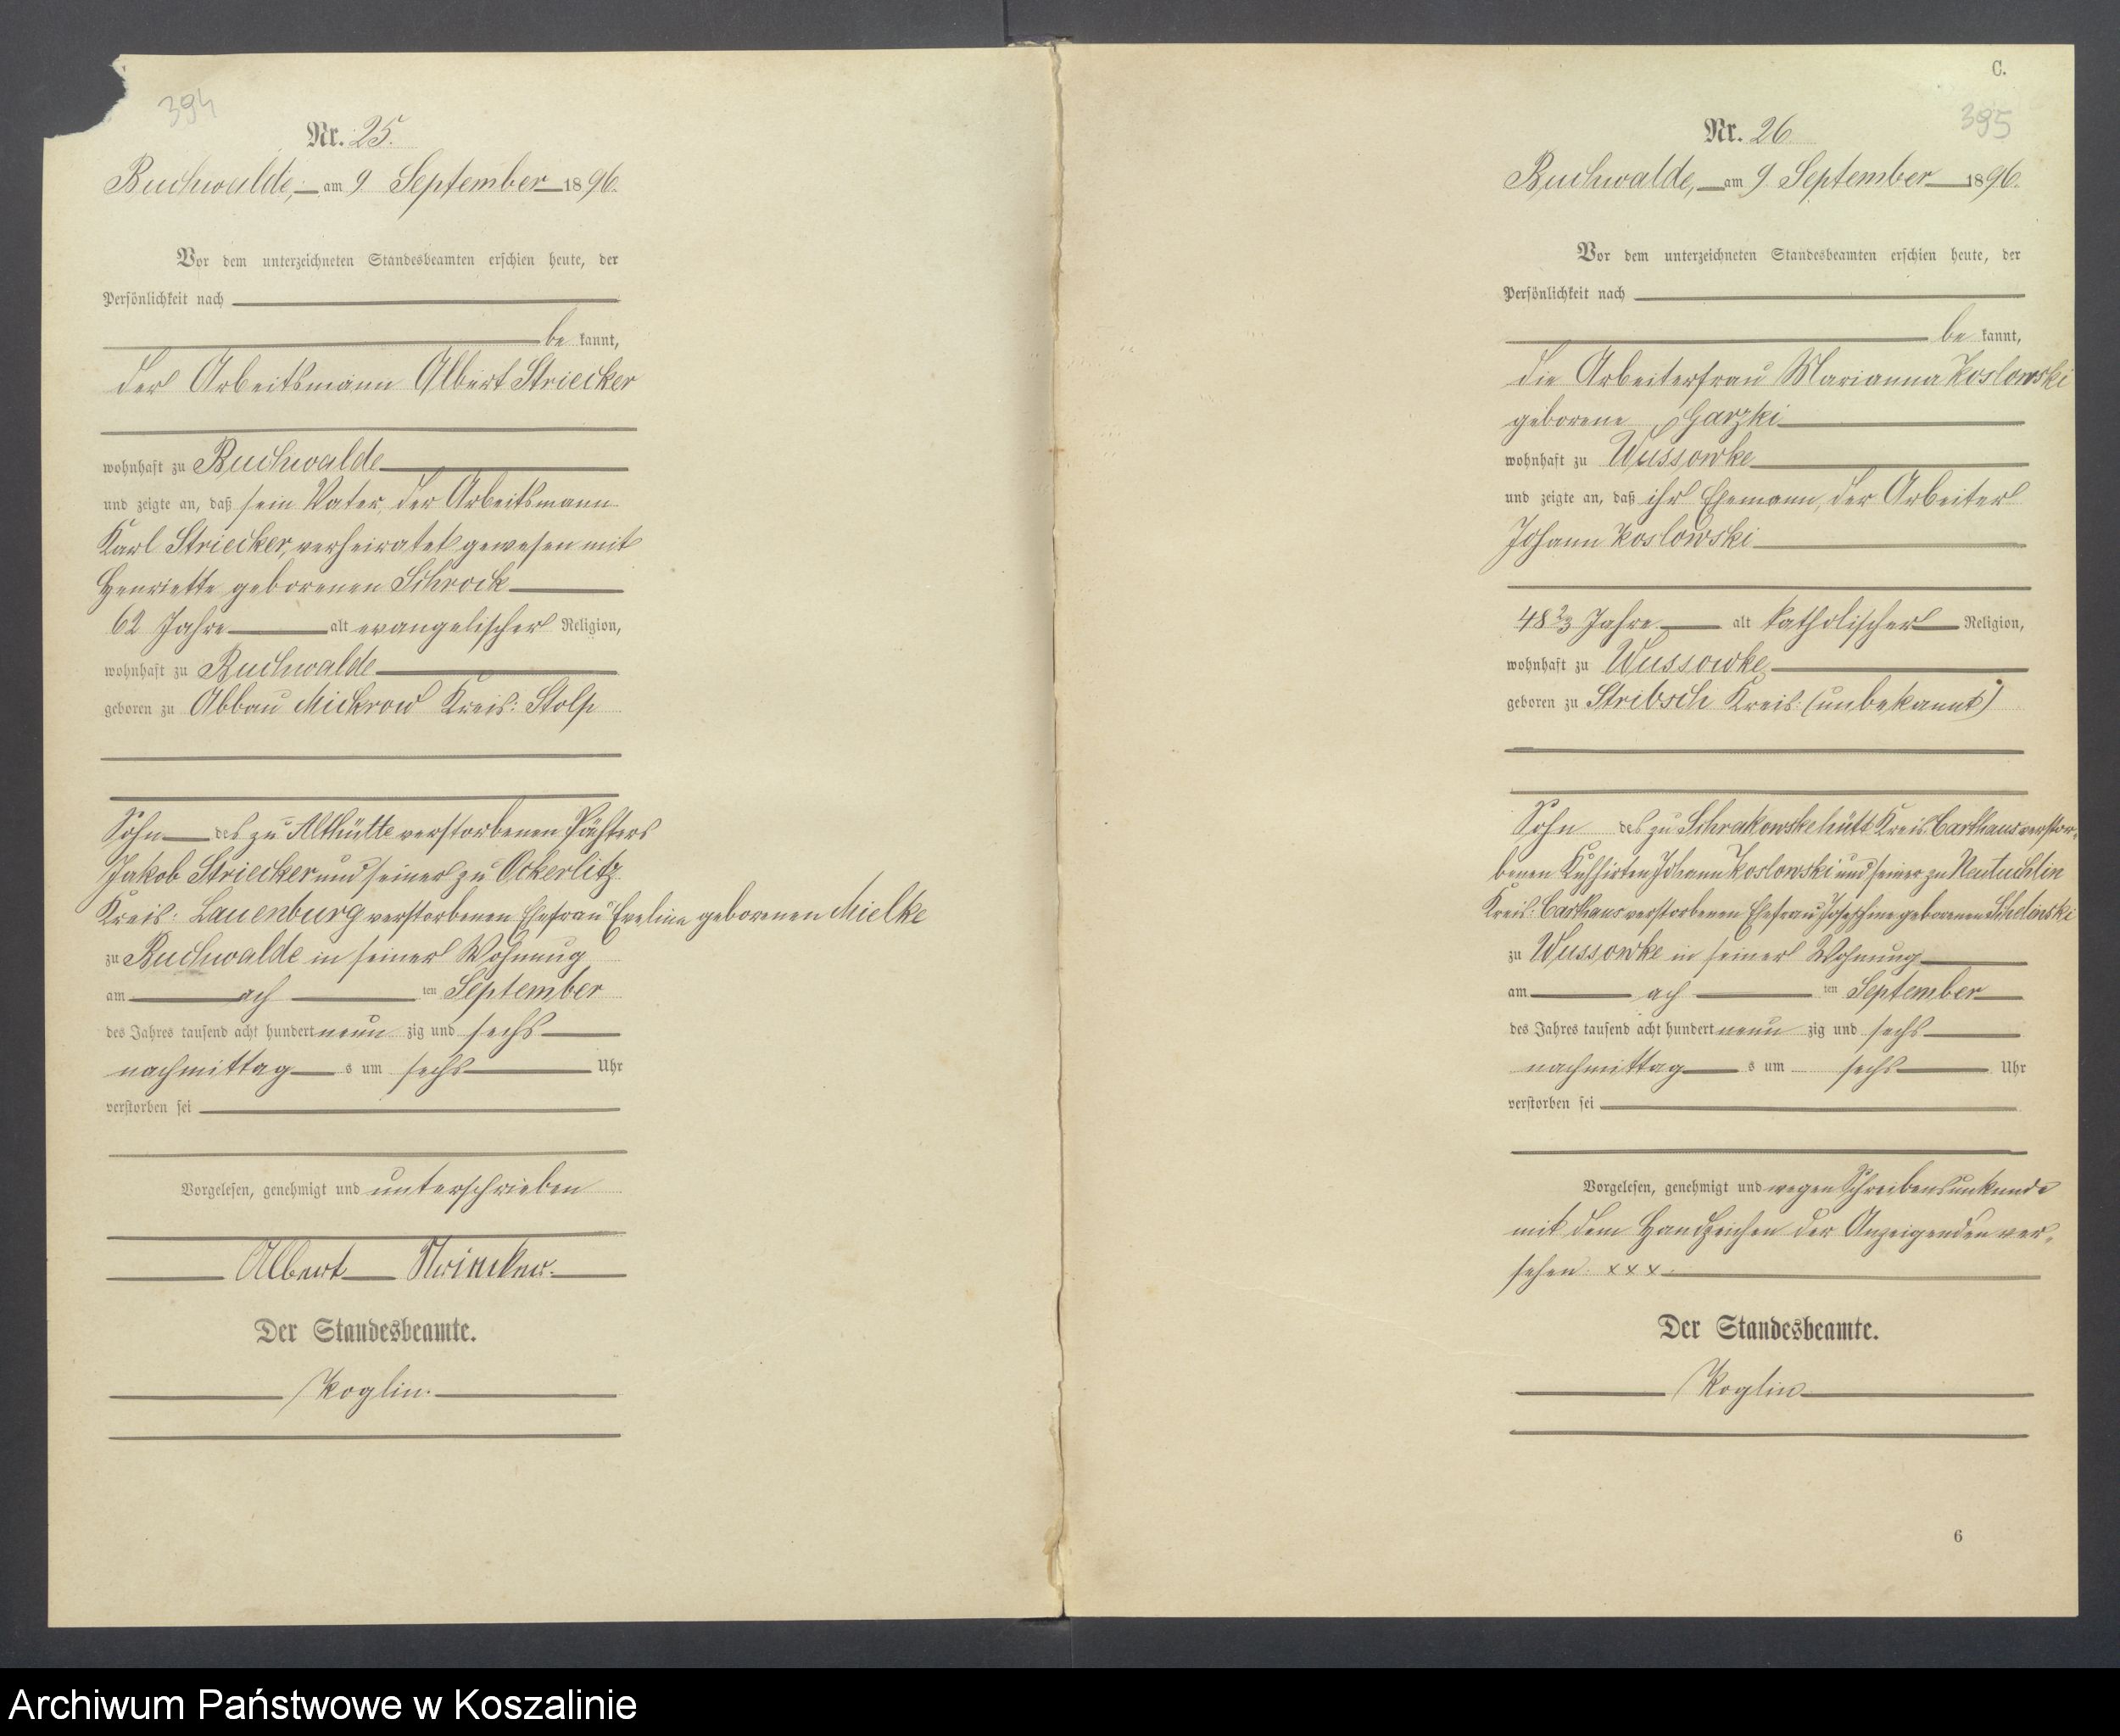 394
Nr. 25.
Buchwalde, am 9. September 1896.
Vor dem unterzeichneten Standesbeamten erschien heute, der
Persönlichkeit nach
be kannt,
der Arbeitsmann Albert Striecker
wohnhaft zu Buchwalde
und zeigte an, daß sein Vater, der Arbeitsmann
Karl Striecker, verheiratet gewesen mit
Henriette geborenen Schrock
62 Jahre alt evangelischer Religion,
wohnhaft zu Buchwalde
geboren zu Abbau Mickrow Kreis: Stolp
Sohn des zu Althütte verstorbenen Pächters
Jakob Striecker und seiner zu Ockerlitz
Kreis: Lauenburg verstorbenen Ehefrau Eveline geborenen Mielke
zu Buchwalde in seiner Wohnung
am ach ten September
des Jahres tausend acht hundert neun zig und sechs
nachmittag s um sechs Uhr
verstorben sei
Vorgelesen, genehmigt und unterschrieben
Albert Striecker.
Der Standesbeamte.
Koglin.
C.
395
Nr. 26.
Buchwalde, am 9. September 1896.
Vor dem unterzeichneten Standesbeamten erschien heute, der
Persönlichkeit nach
be kannt,
die Arbeiterfrau Marianna Koslowski
geborene Garzki
wohnhaft zu Wussowke
und zeigte an, daß ihr Ehemann, der Arbeiter
Johann Koslowski
48 2/3 Jahre alt katholischer Religion,
wohnhaft zu Wussowke
geboren zu Stribsch Kreis: (unbekannt)
Sohn des zu Schrakowskehütt Kreis Carthaus verstor-
benen Kuhhirten Johann Koslowski und seiner zu Neutuchlin
Kreis: Carthaus verstorbenen Ehefrau Josephine geborenen Schelinski
zu Wussowke in seiner Wohnung
am ach ten September
des Jahres tausend acht hundert neun zig und sechs
nachmittag s um sechs Uhr
verstorben sei
Vorgelesen, genehmigt und wegen Schreibensunkunde
mit dem Handzeichen der Anzeigenden ver-
sehen: xxx.
Der Standesbeamte.
Koglin
6
Archiwum Państwowe w Koszalinie